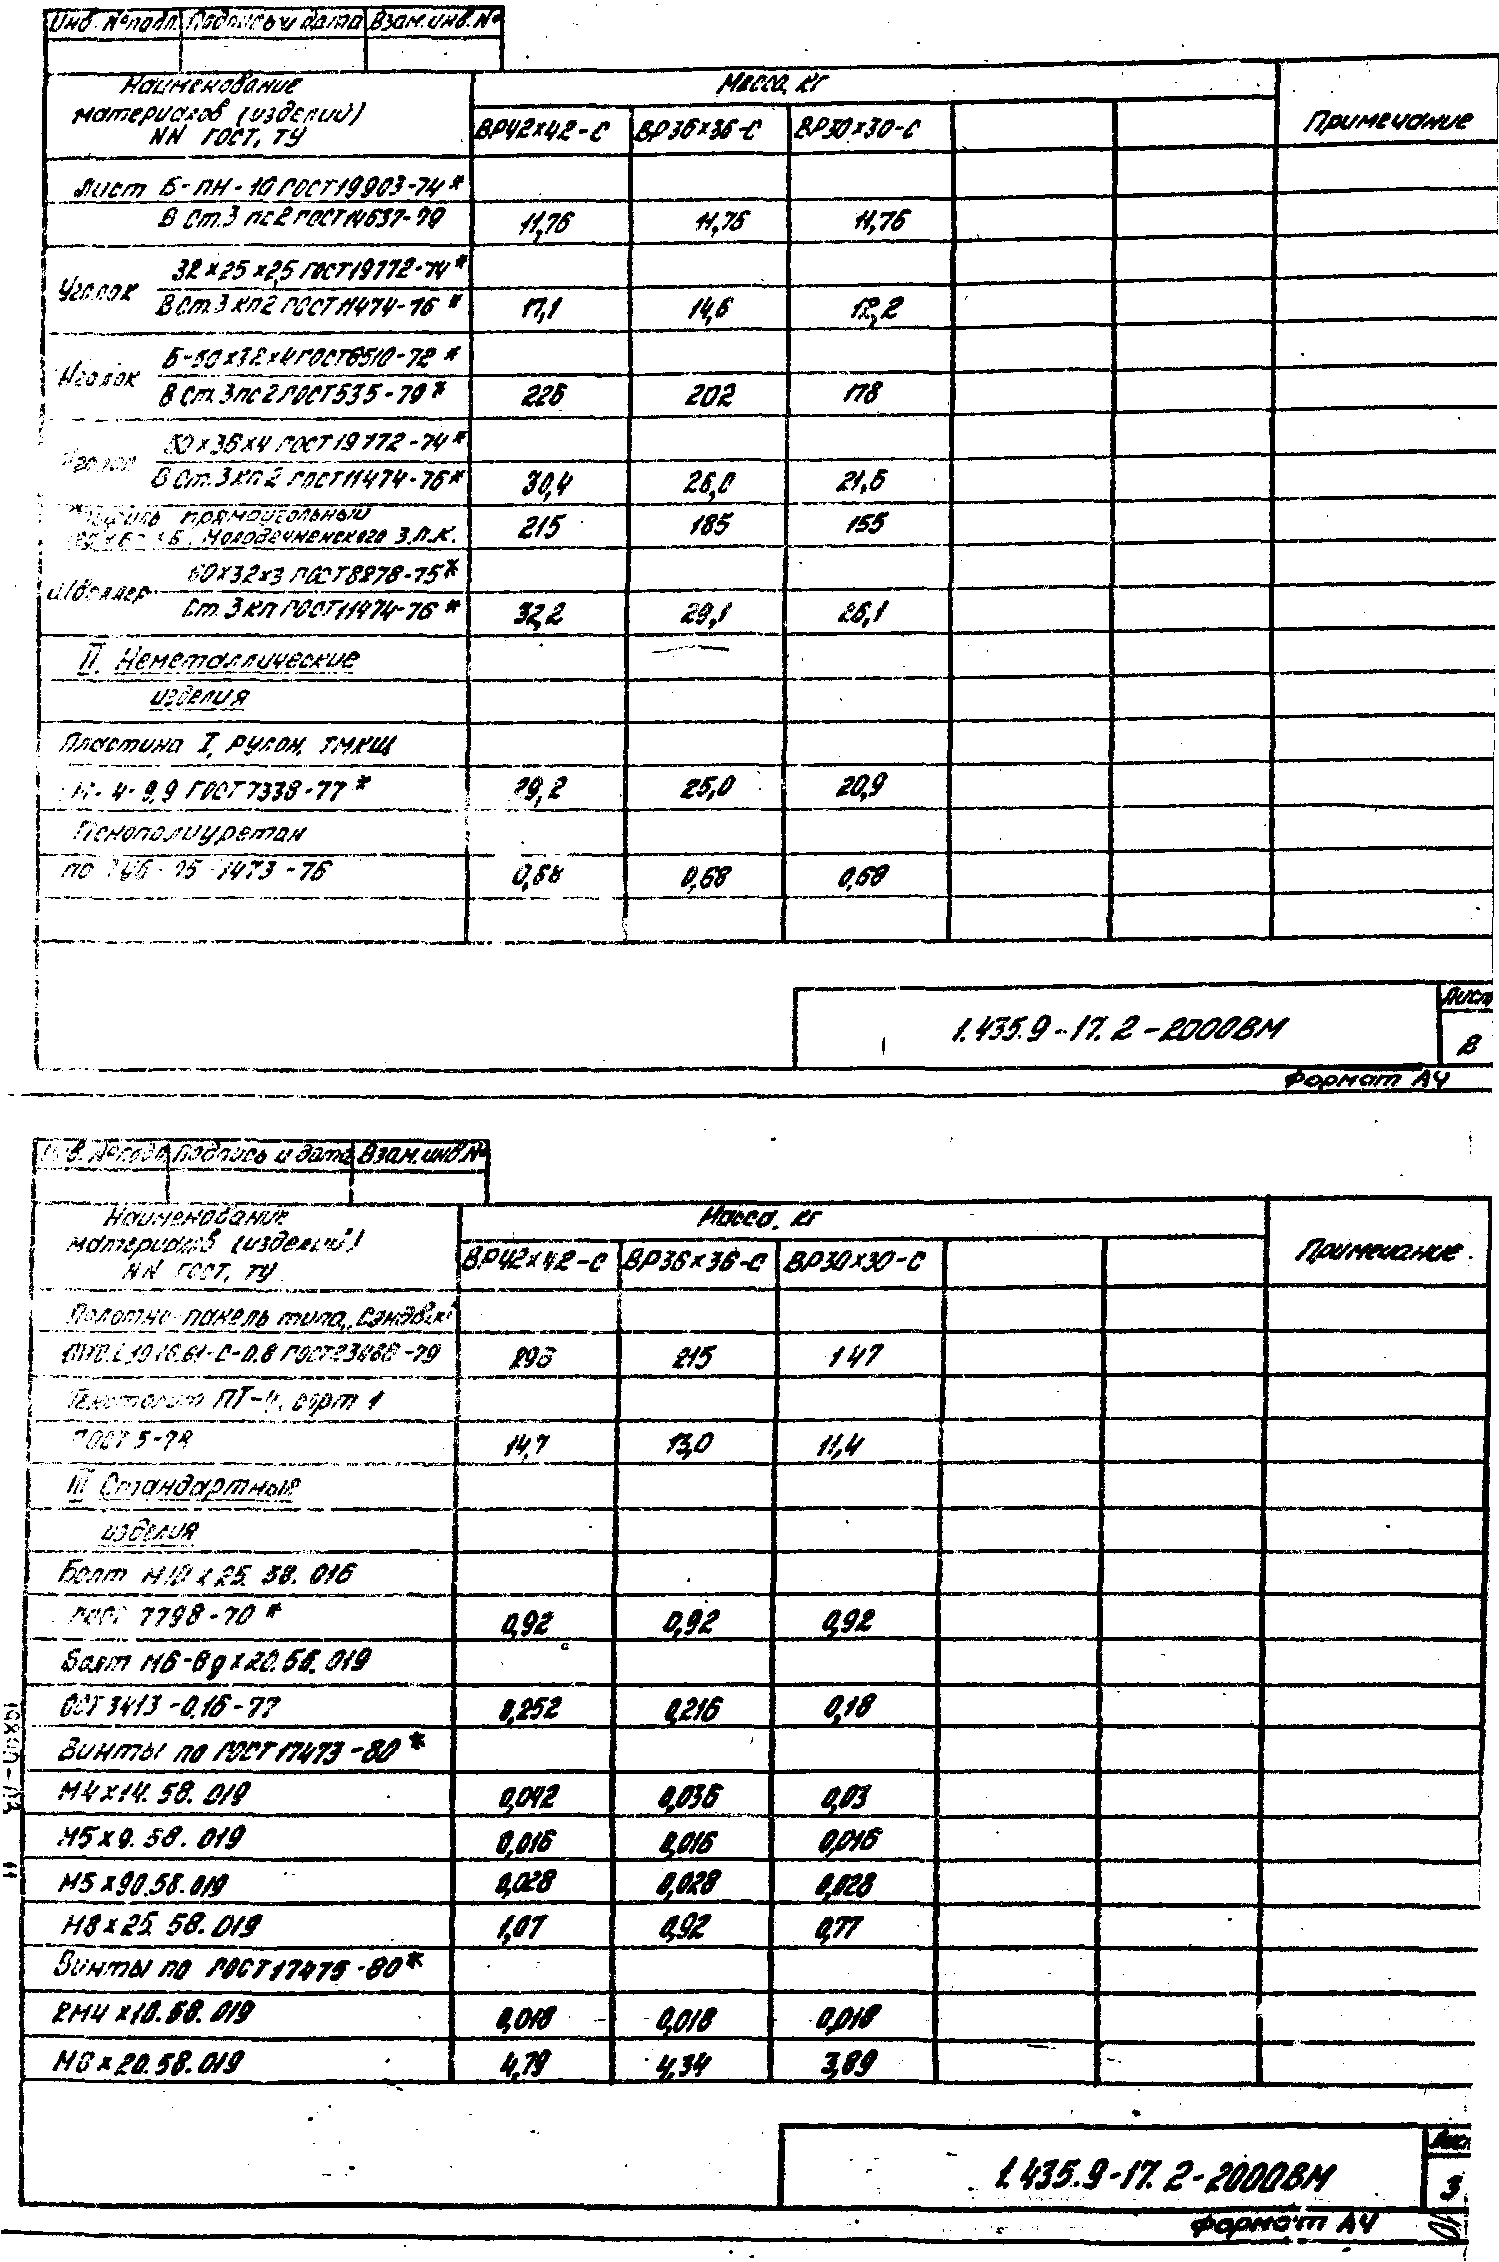 Инв. № подл. Подпись и дата Взам. инв. №
Наименование
материалов (изделий)
NN ГОСТ, ТУ
Масса, кг
Примечание
ВР42×42-С ВР36×36-С ВР30×30-С
Лист Б-ПН-10 ГОСТ 19903-74*
В Ст.3 пс2 ГОСТ 14637-79 11,76 11,76 11,76
32×25×2,5 ГОСТ 19772-74*
Уголок
В Ст.3 кп2 ГОСТ 11474-76* 17,1 14,6 12,2
Б-50×32×4 ГОСТ 8510-72*
Уголок
В Ст.3пс2 ГОСТ 535-79* 226 202 178
50×36×4 ГОСТ 19772-74*
Уголок
В Ст.3 кп2 ГОСТ 11474-76* 30,4 26,0 21,6
прямоугольный
Молодечненского З.Л.К. 215 185 155
60×32×3 ГОСТ 8278-75*
Швеллер
Ст.3 кп ГОСТ 11474-76* 32,2 29,1 26,1
II. Неметаллические
изделия
Пластина I, рулон, ТМКЩ
4-9,9 ГОСТ 7338-77* 29,2 25,0 20,9
Пенополиуретан
по 1473-76 0,68 0,68 0,68
1.435.9-17.2-2000ВМ
Лист
2
Формат А4
Инв. № подл. Подпись и дата Взам. инв. №
Наименование
материалов (изделий)
NN ГОСТ, ТУ
Масса, кг
Примечание
ВР42×42-С ВР36×36-С ВР30×30-С
Полотно-панель типа „Сэндвич"
С-0.8 ГОСТ 23486-79 296 215 147
Текстолит ПТ-4, сорт 1
ГОСТ 5-78 14,7 13,0 11,4
III Стандартные
изделия
Болт М10×25. 58. 016
ГОСТ 7798-70* 0,92 0,92 0,92
Болт М6-6g×20.56. 019
ОСТ 3413-0,16-77 0,252 0,216 0,18
Винты по ГОСТ 17473-80*
М4×14. 58. 019 0,042 0,036 0,03
М5×9. 58. 019 0,016 0,016 0,016
М5×90.58.019 0,028 0,028 0,028
М8×25. 58. 019 1,07 0,92 0,77
Винты по ГОСТ 17475-80*
2М4×10.58.019 0,018 0,018 0,018
М6×20.58.019 4,79 4,34 3,89
1.435.9-17.2-2000ВМ
Лист
3
Формат А4